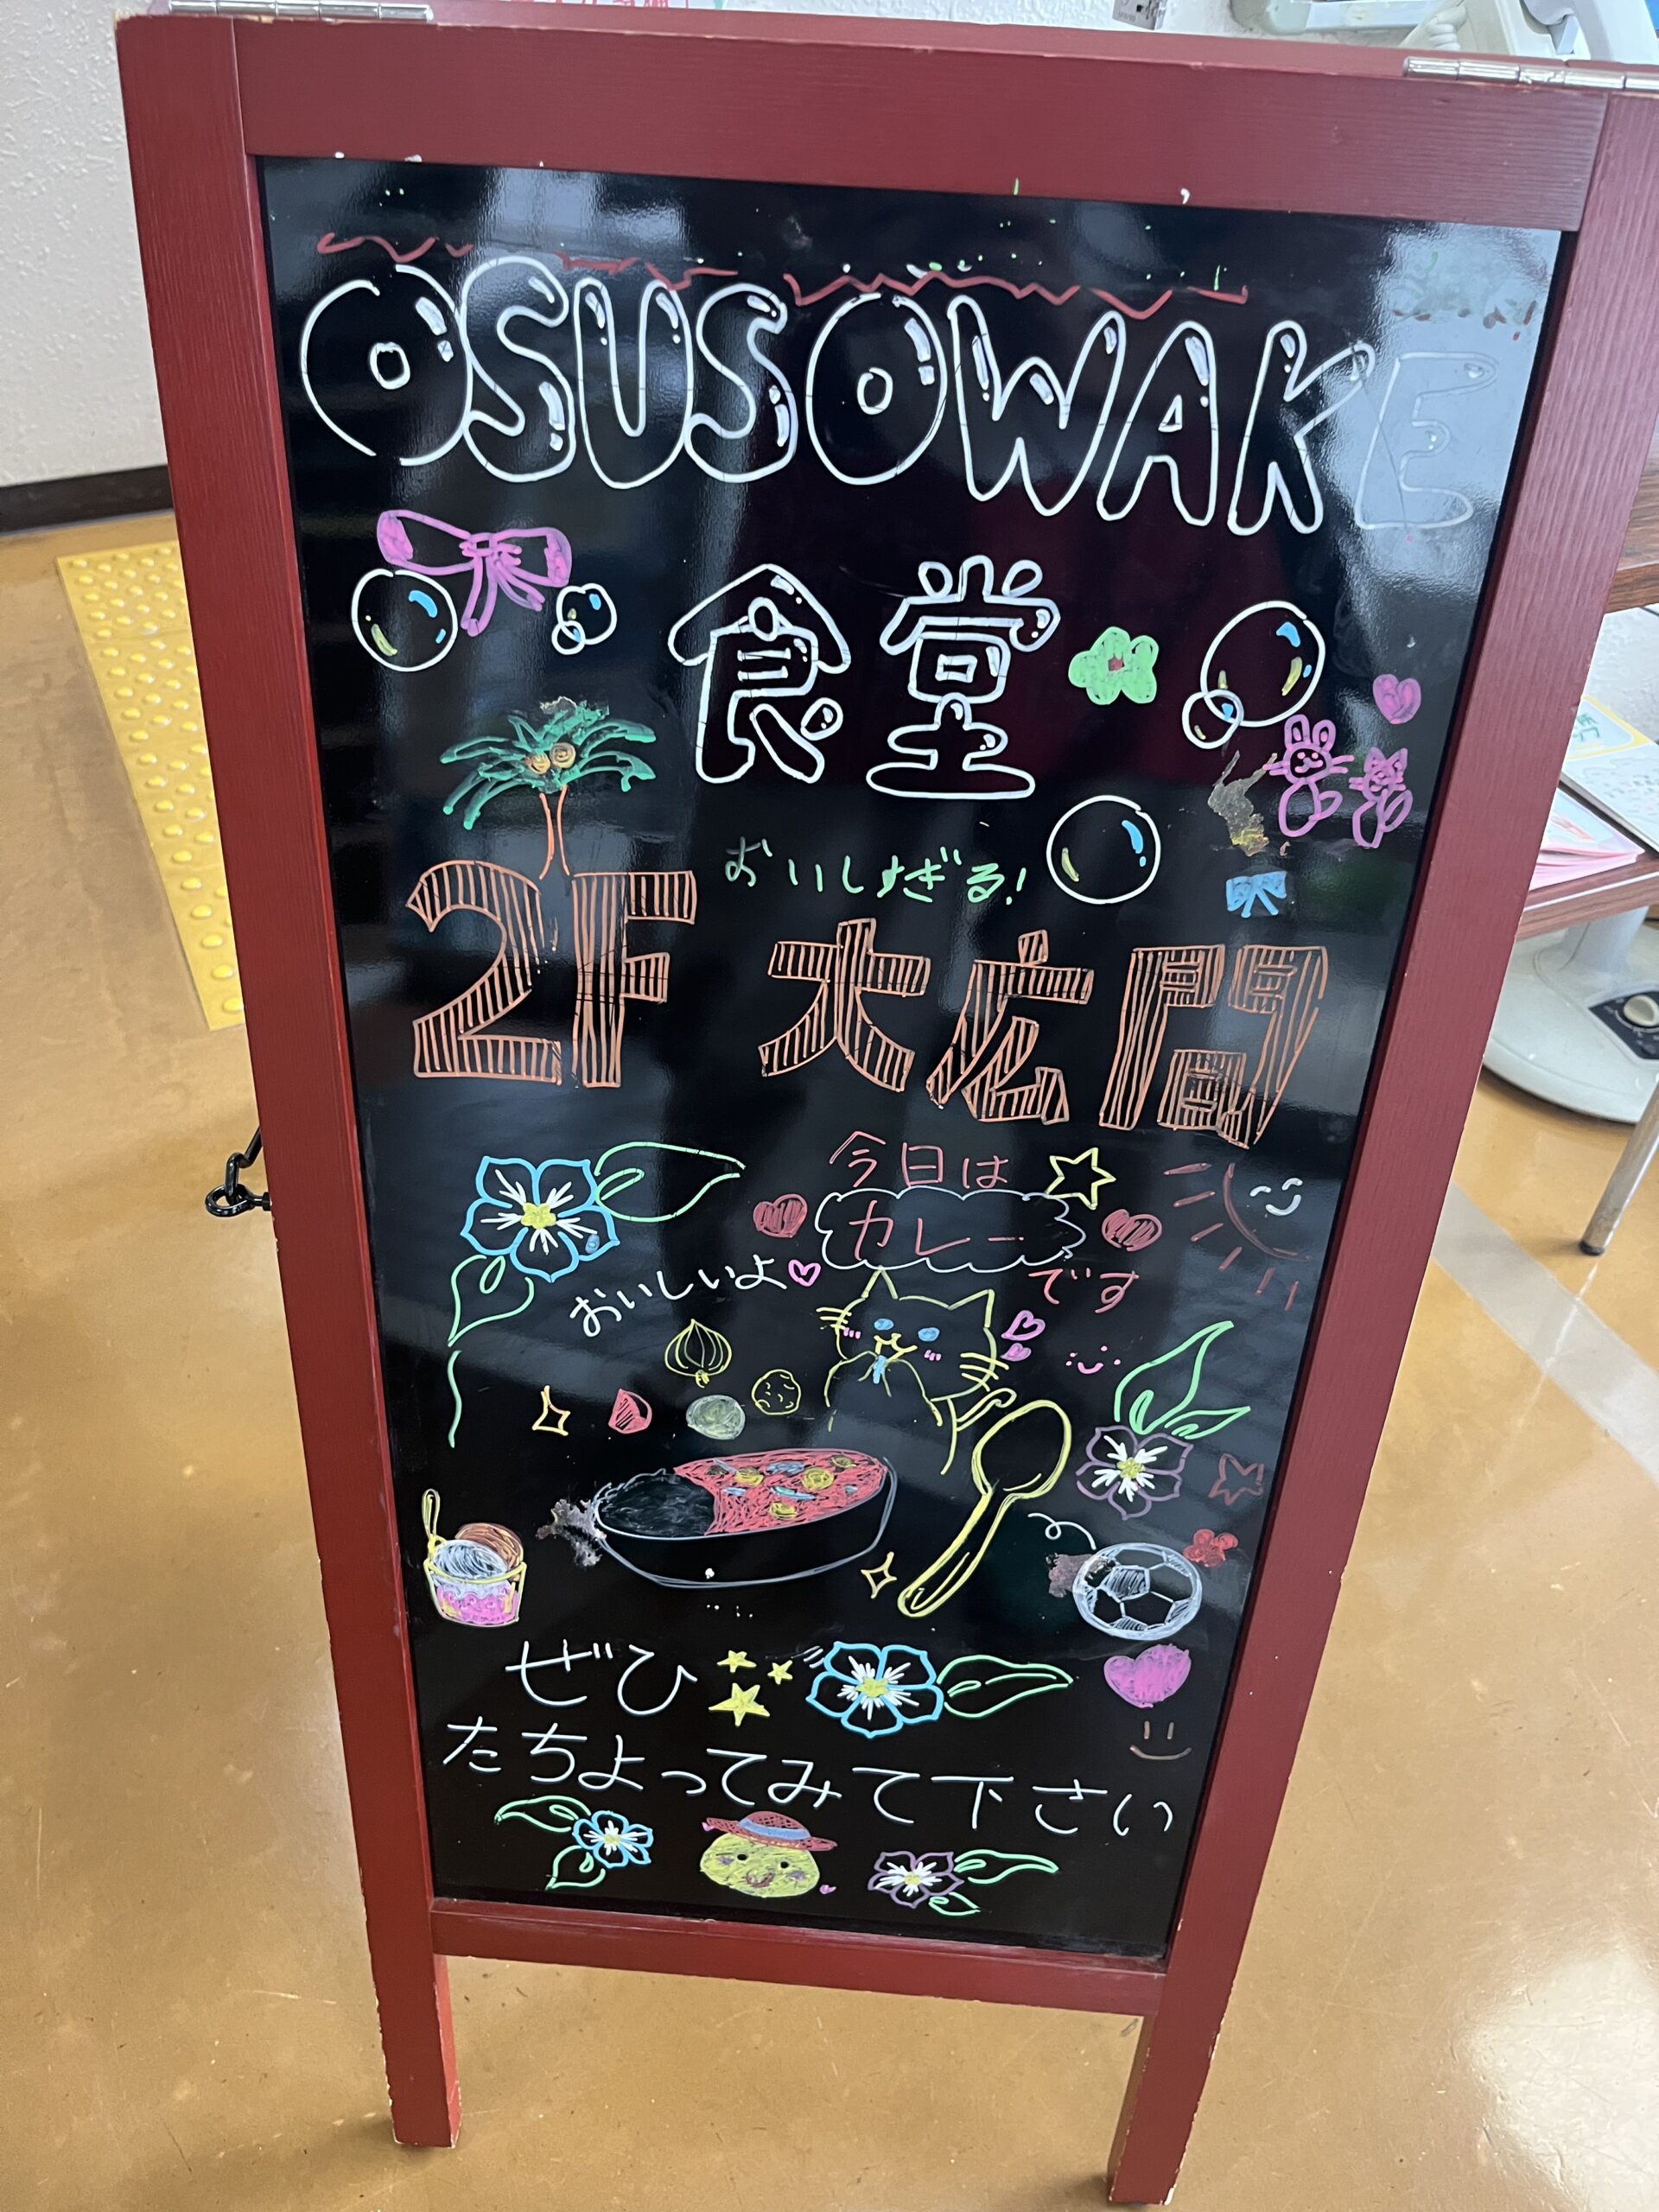 OSUSOWAKE
食堂
おいしすぎる!
2F 大広間
今日は
カレー
です
おいしいよ
ぜひ
たちよってみて下さい